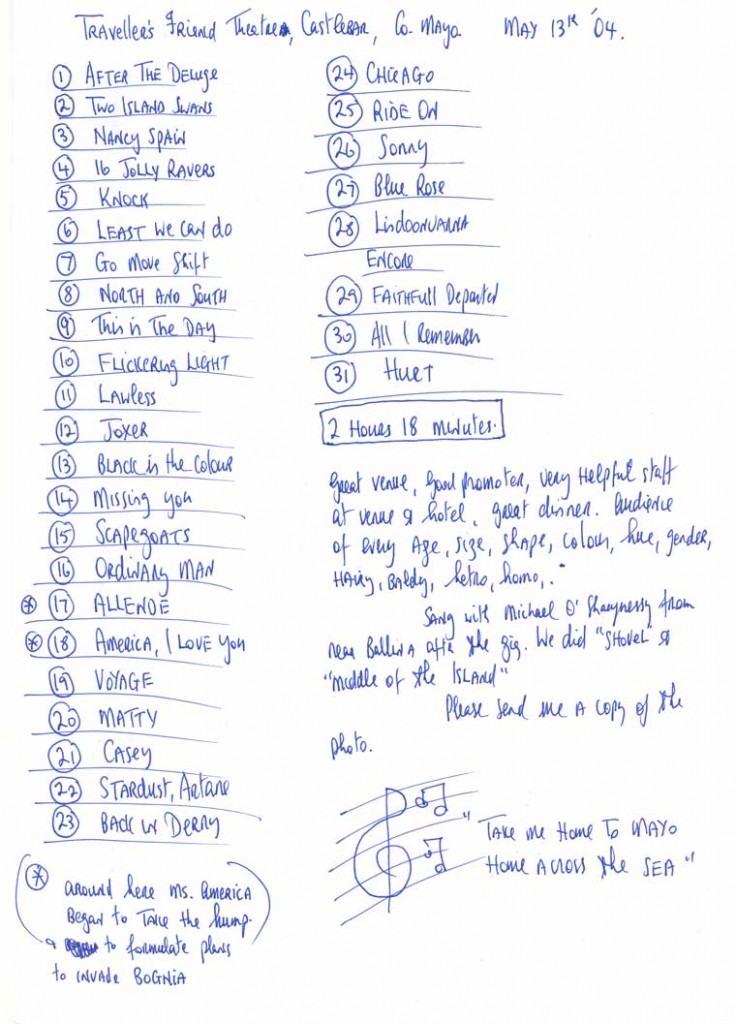 Traveller's Friend Theatre, Castlebar, Co. Mayo. MAY 13th '04.
1 AFTER THE DELUGE
2 TWO ISLAND SWANS
3 NANCY SPAIN
4 16 JOLLY RAVERS
5 KNOCK
6 LEAST WE CAN do
7 Go Move Shift
8 NORTH AND SOUTH
9 This is The DAY
10 FLICKERING LIGHT
11 LAWLESS
12 JOXER
13 BLACK is the COLOUR
14 Missing you
15 SCAPEGOATS
16 ORDINARY MAN
* 17 ALLENDE
* 18 AMERICA, I LOVE YOU
19 VOYAGE
20 MATTY
21 CASEY
22 STARDUST, Artane
23 BACK IN DERRY
* around here Ms. America
Began to TAKE the hump.
to formulate plans
to INVADE BOGNIA
24 CHICAGO
25 RIDE ON
26 Sonny
27 Blue Rose
28 LISDOONVARNA
ENCORE
29 FAITHFULL Departed
30 All I Remember
31 HURT
2 Hours 18 minutes.
Great venue, Good promoter, very Helpful staff
at venue & hotel, great dinner. Audience
of every Age, size, shape, colour, hue, gender,
HAiry, BALDy, hetro, homo,..
Sang with Michael O'Shaynessy from
near Ballina after the gig. We did "SHOVEL" &
"Middle of the ISLAND"
Please send me A copy of the
photo.
"TAKE me Home To MAYO
Home ACROSS the SEA"